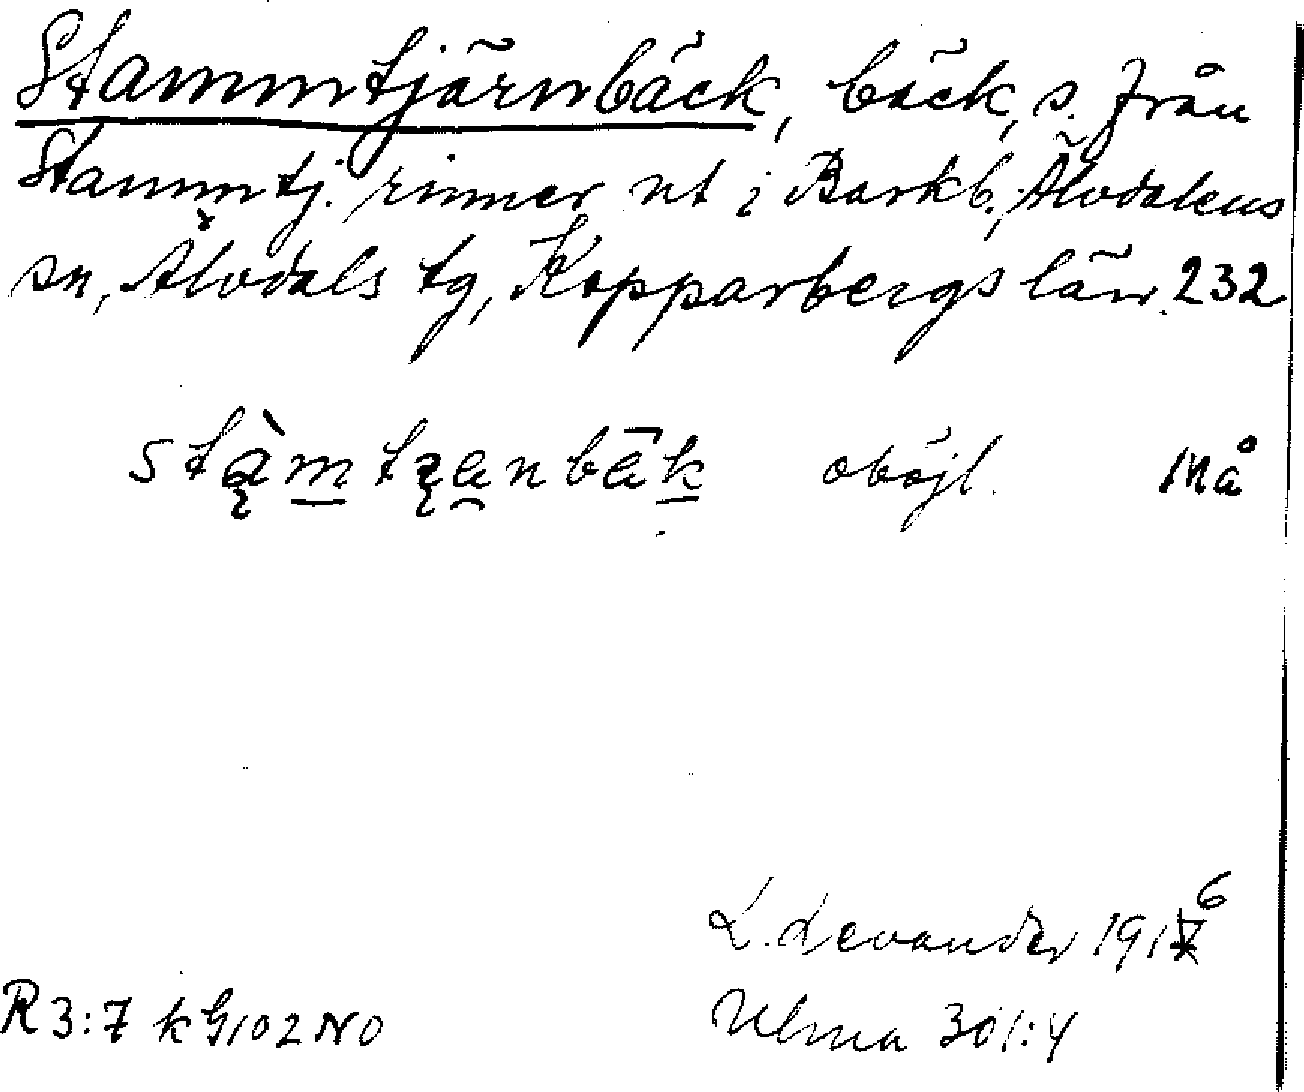 Stammtjärnbäck, bäck, s. från
Stammtj. rinner ut i Barkb., Älvdalens
sn, Älvdals tg, Kopparbergs län. 232
oböjl. Må
L. Levander 1916
R 3:7 k G 102 NO
Ulma 301:4